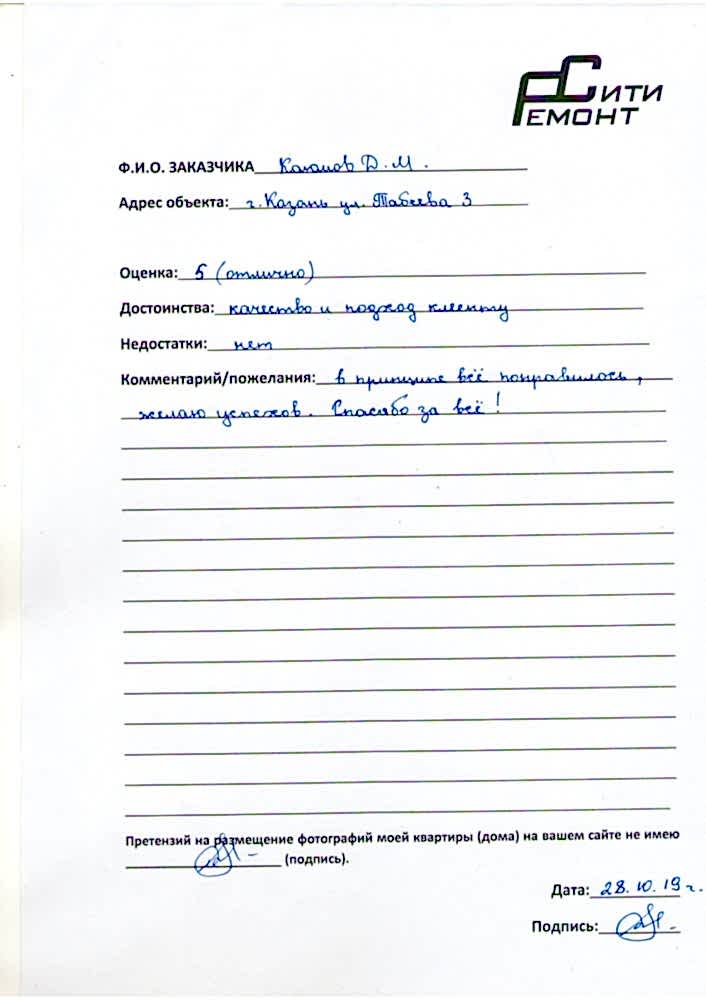 СИТИ
РЕМОНТ
Ф.И.О. ЗАКАЗЧИКА Д.М.
Адрес объекта: г.Казань ул. Табеева 3
Оценка: 5 (отлично)
Достоинства: качество и подход клиенту
Недостатки: нет
Комментарий/пожелания: в принципе всё понравилось,
желаю успехов. Спасибо за всё!
Претензий на размещение фотографий моей квартиры (дома) на вашем сайте не имею
(подпись).
Дата: 28.10.19 г.
Подпись: